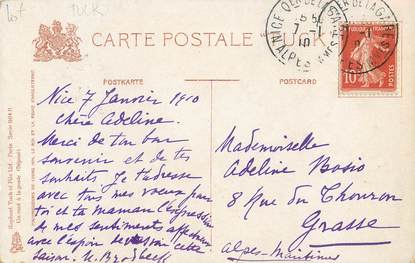 Lot
TUCK
CARTE POSTALE
TUCK
POSTKARTE
POSTCARD
NICE QER DE LA GARE
7-1
10
ALPES MMES
10
Nice 7 Janvier 1910
Chère Adeline.
Merci de ton bon
souvenir et de tes
souhaits. Je t'adresse
avec tous mes vœux pour
toi et ta maman l'expression
de mes sentiments affectueux
avec l'espoir de cette
saison.
Mademoiselle
Adeline Bosio
8 Rue du Thouron
Grasse
Alpes-Maritimes
Raphael Tuck et Fils Ltd. Paris